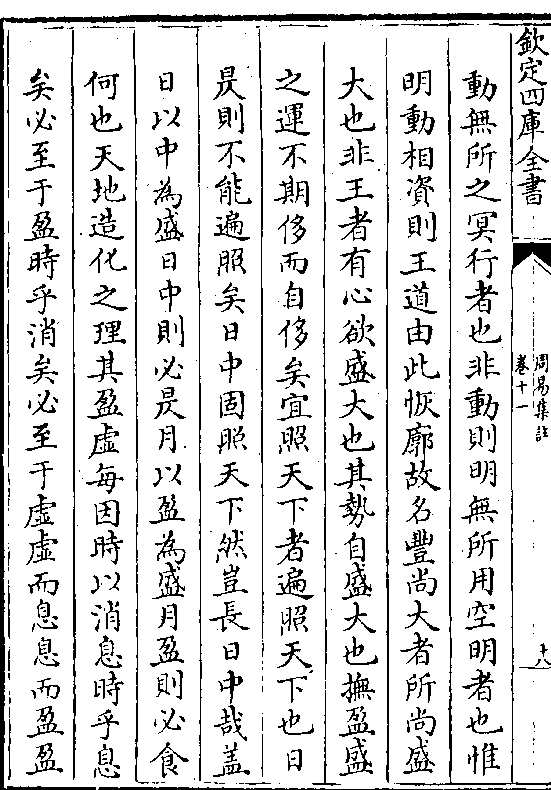 欽定四庫全書
周易集註
卷十一
十八
動無所之冥行者也非動則明無所用空明者也惟
明動相資則王道由此恢廓故名豐尚大者所尚盛
大也非王者有心欲盛大也其勢自盛大也撫盈盛
之運不期侈而自侈矣宜照天下者遍照天下也日
昃則不能遍照矣日中固照天下然豈長日中哉盖
日以中為盛日中則必昃月以盈為盛月盈則必食
何也天地造化之理其盈虛每因時以消息時乎息
矣必至于盈時乎消矣必至于虛虛而息息而盈盈